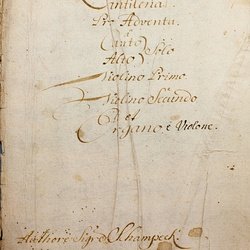 Cantilena
Pro Adventu.
à
Canto
Alto) Solo
Violino Primo
Violino Secundo
et
Organo e Violone.
Authore Sigr: